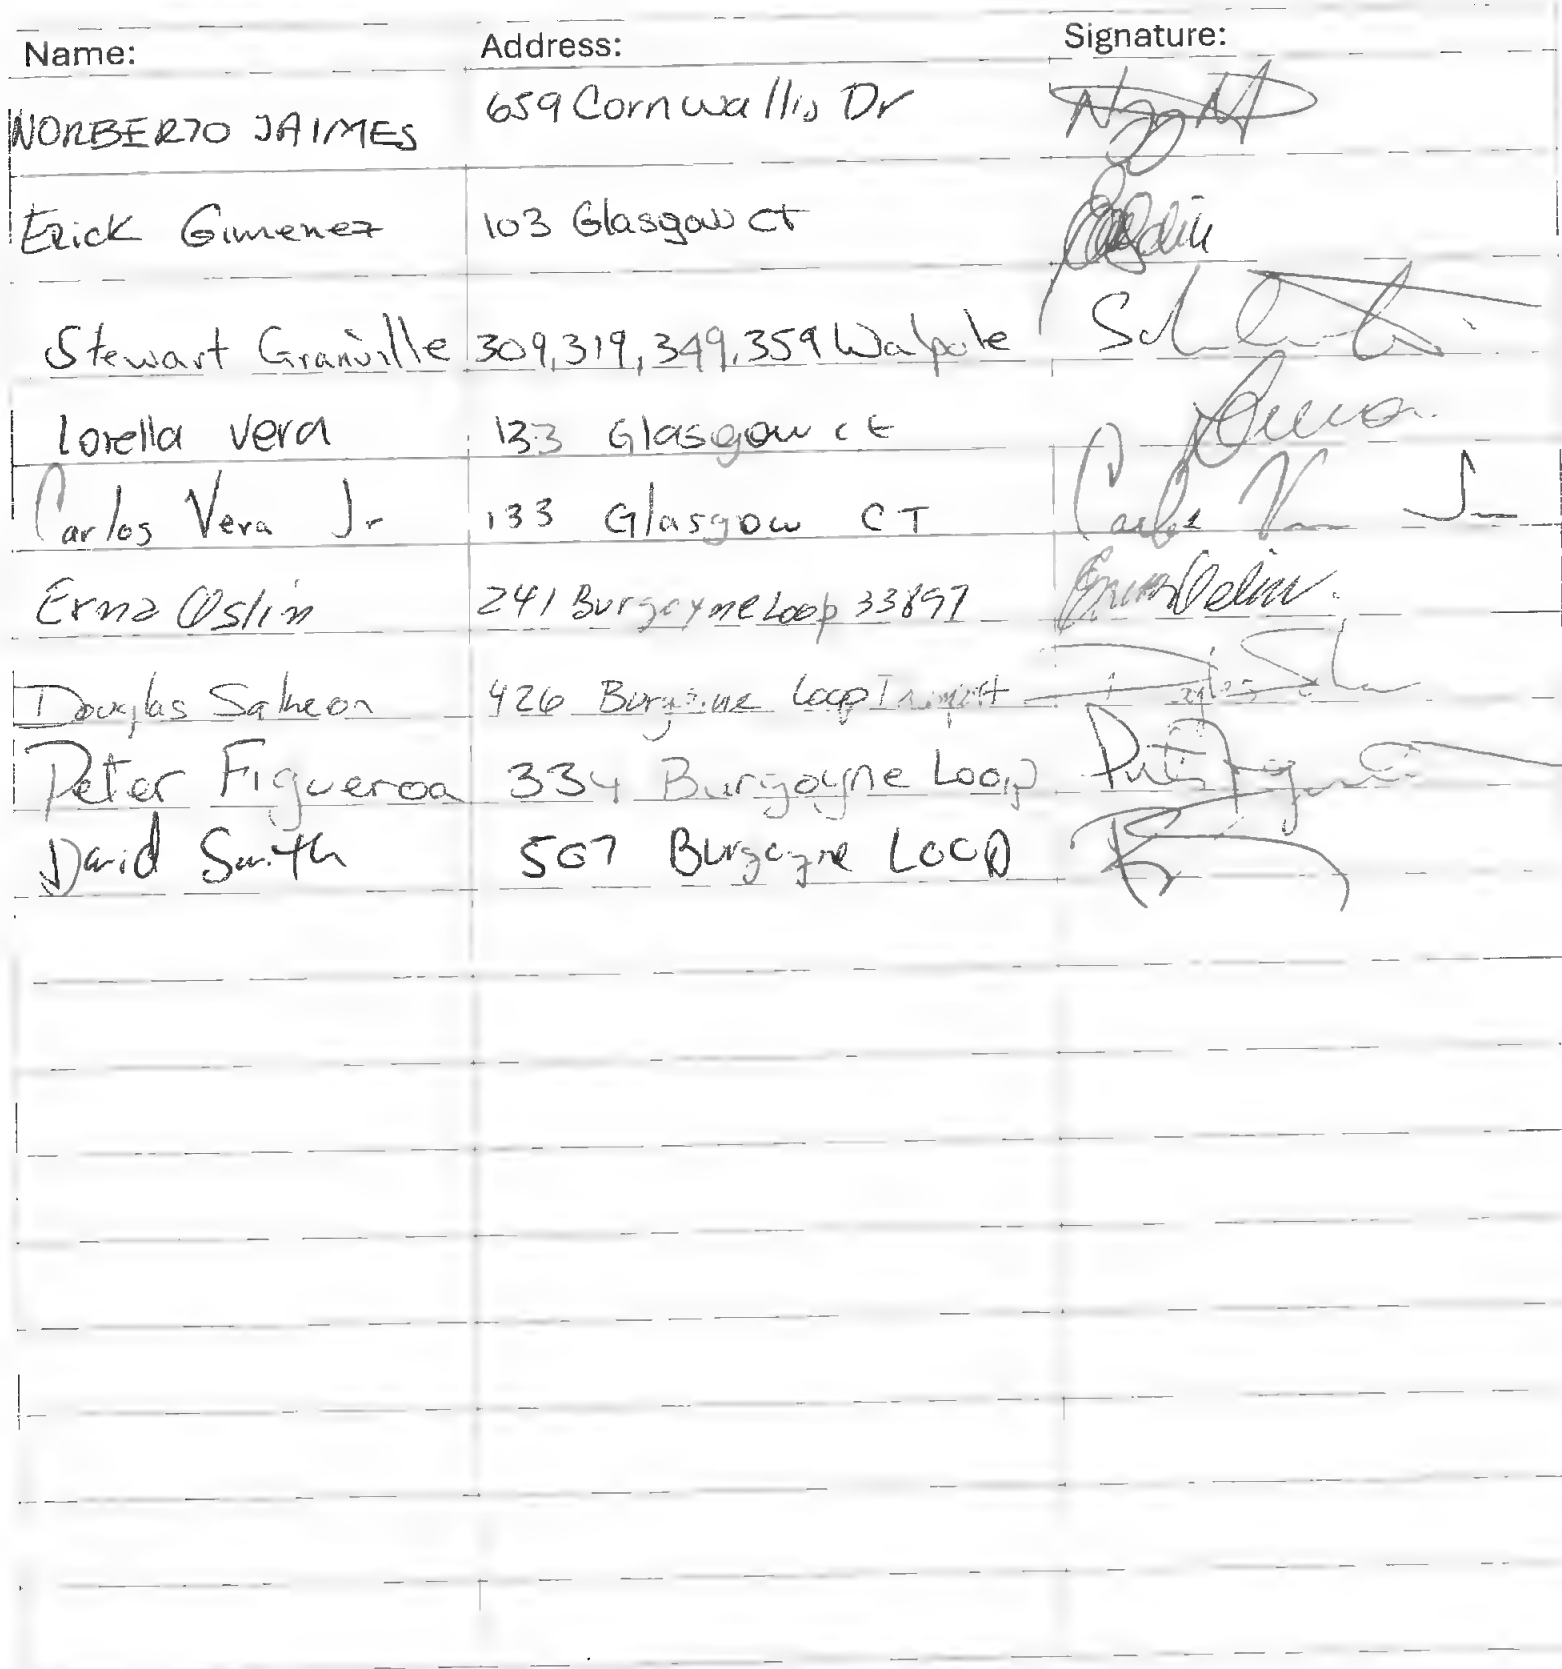 Name: Address: Signature:
NORBERTO JAIMES 659 Cornwallis Dr
Erick Gimenez 103 Glasgow ct
Stewart Granville 309, 319, 349, 359 Walpole
Lorella Vera 133 Glasgow ct
Carlos Vera Jr 133 Glasgow CT Carlos Vera Jr
Erna Oslin 241 Burgoyne Loop 33897 Erna Oslin
Douglas 426 Burgoyne Loop
Peter Figueroa 334 Burgoyne Loop
David Smith 507 Burgoyne LOOP